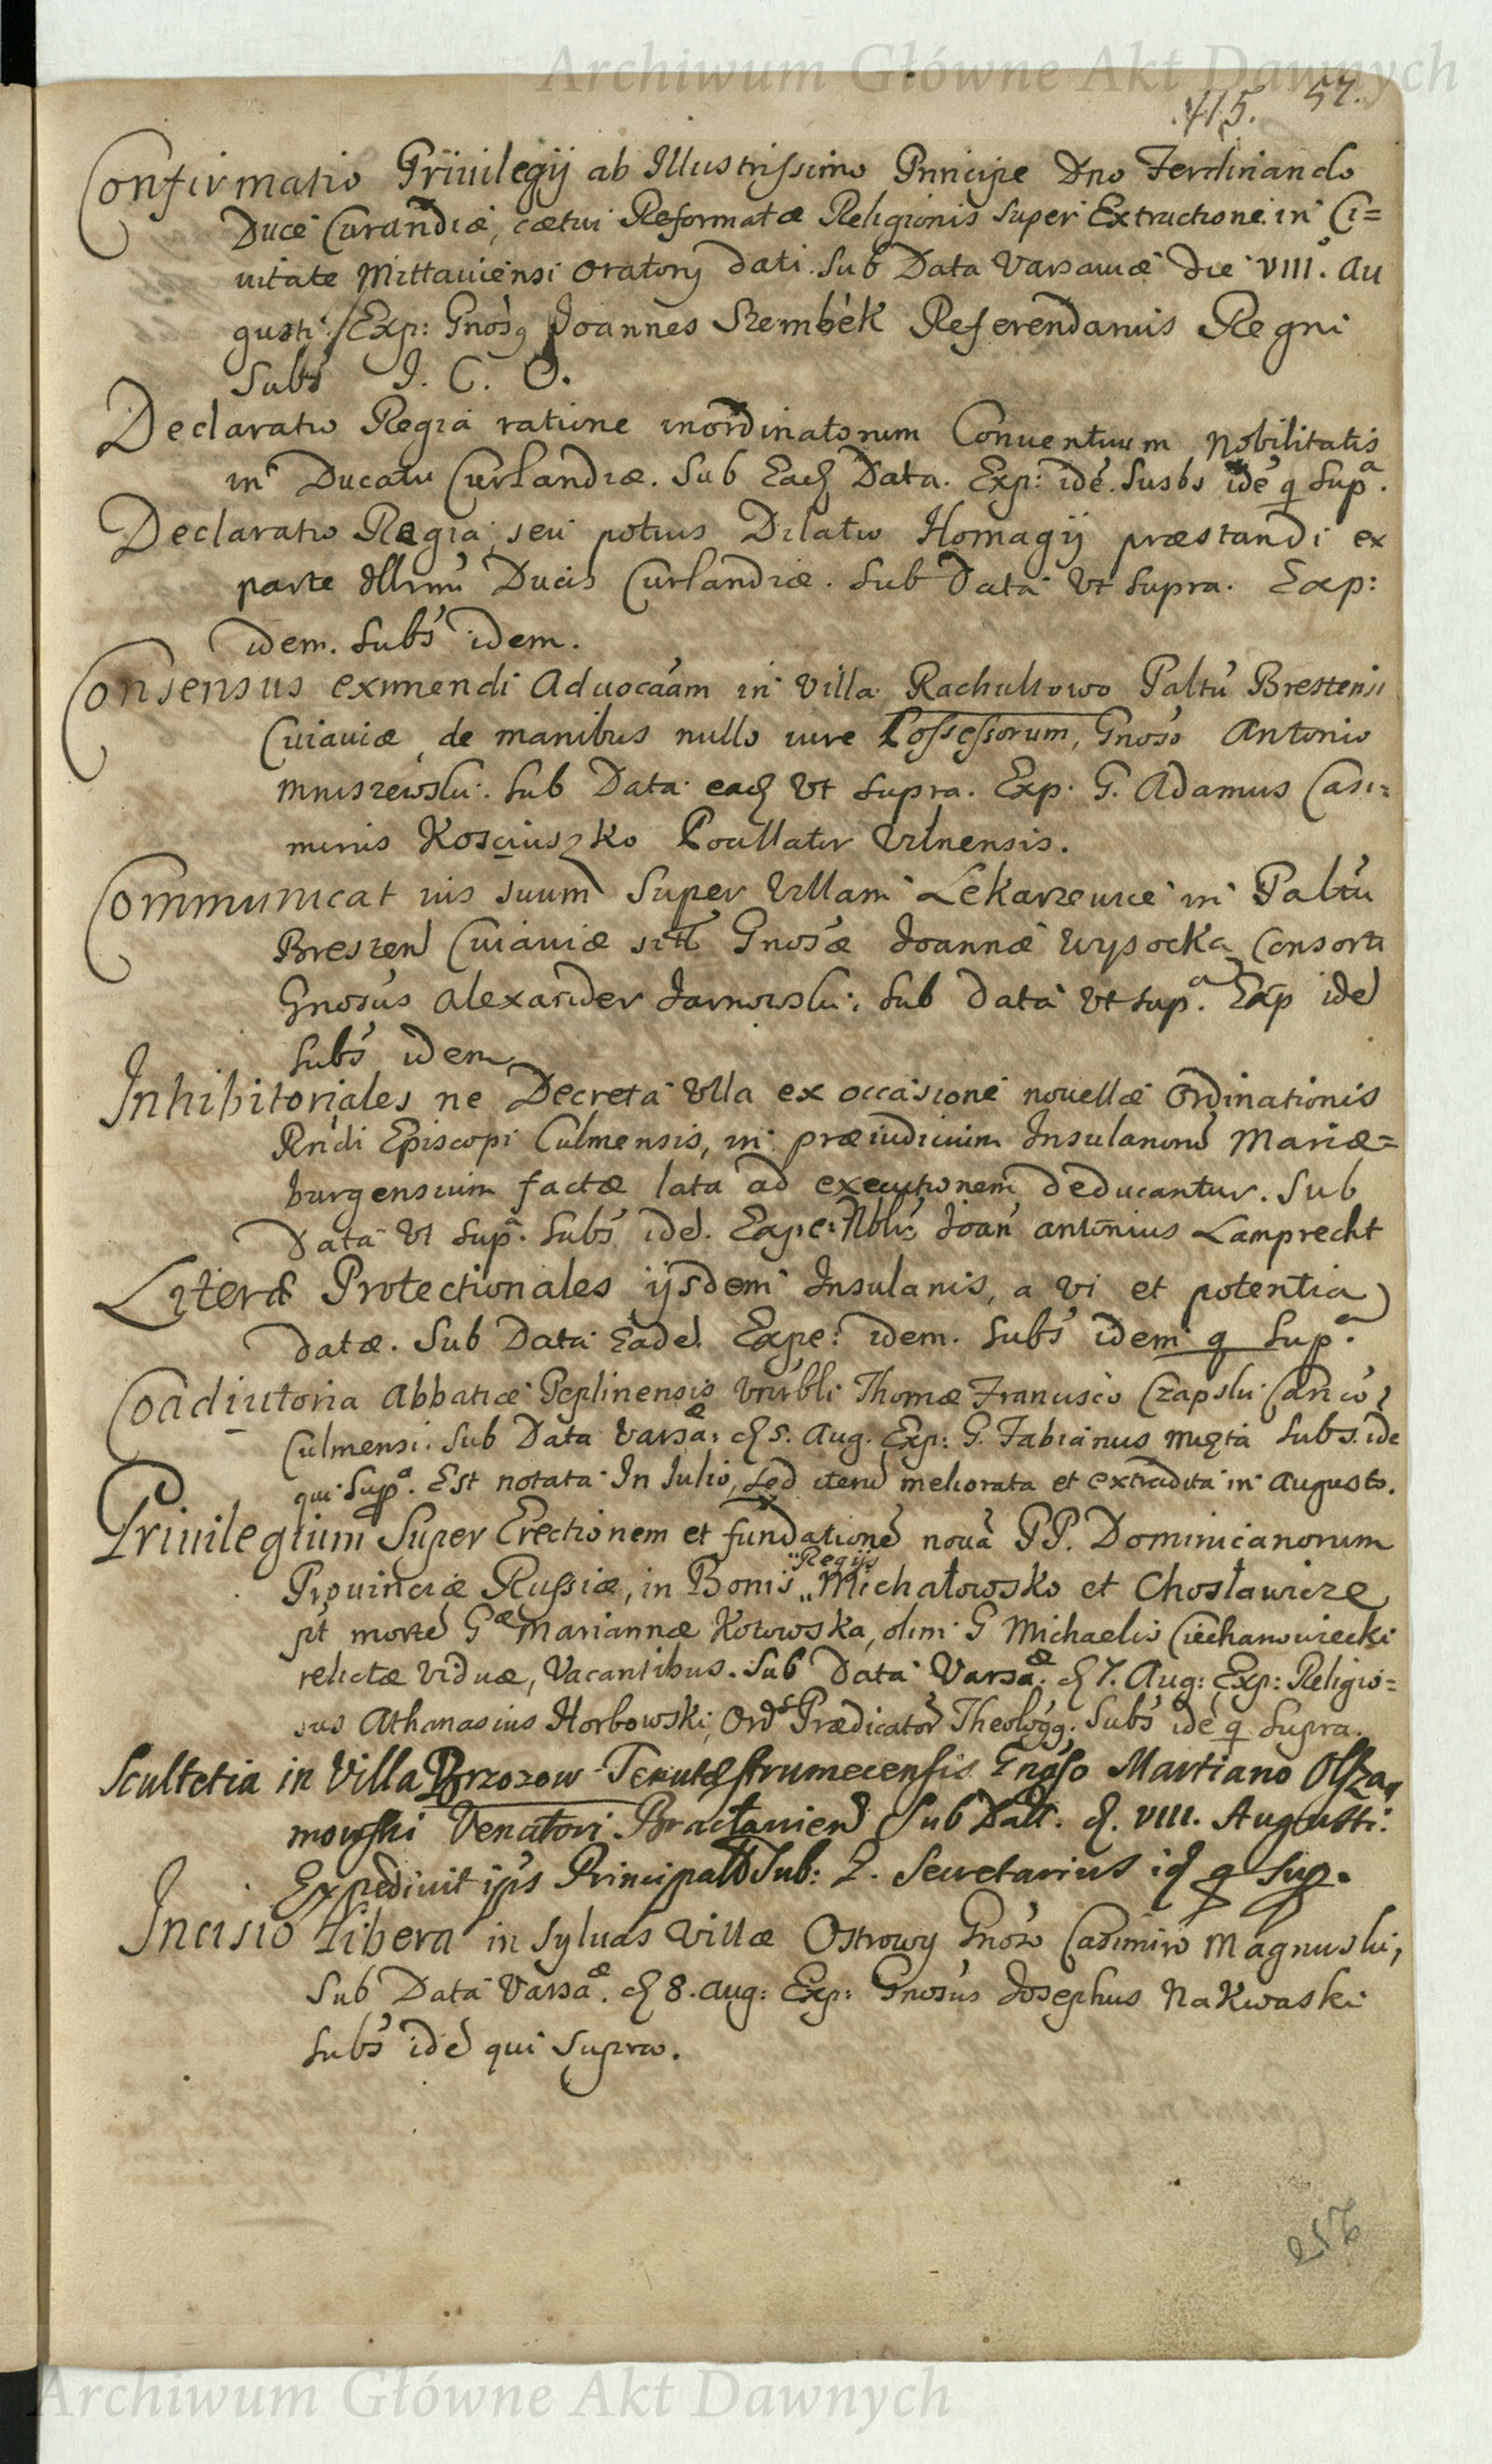 Archiwum Główne Akt Dawnych
415. 57.
Confirmatio Priuilegij ab Illustrissimo Principe Dno Ferdinando
Duce Curandiæ, cætui Reformatæ Religionis super Extructione in Ci=
uitate Mittauiensi Oratorij dati. Sub Data Varsauiæ die VIII. Au
gusti. Exp: Gnosq Joannes Szembek Referendarius Regni
Subs J. C. O.
Declaratio Regia ratione inordinatorum Conuentuum Nobilitatis
in Ducatu Curlandiæ. Sub Eadq Data. Exp: idē. Susbs idē q Supa.
Declaratio Regia, seu potius Dilatio Homagij præstandi ex
parte Illrimi Ducis Curlandiæ. Sub Data Vt Supra. Exp:
idem. Subs idem.
Consensus eximendi Aduocaam in Villa Rachulkowo Paltu Brestensi
Cuiauiæ, de manibus nullo iure Possessorum, Gnoso Antonio
Mniszewski. Sub Data eadq Vt Supra. Exp. G. Adamus Casi=
mirus Kosciuszko Pocillator Vilnensis.
Communicat ius suum Super Villam Lekarzewice in Paltu
Breszen Cuiauiæ sitt Gnosæ Joannæ Wysocka Consorti
Gnosus Alexander Jarnowski. Sub Data Vt Supa. Exp ide
Subs idem
Inhibitoriales ne Decreta Vlla ex occasione nouellæ Ordinationis
Rndi Episcopi Culmensis, in præiudicium Insulanorū Mariæ=
burgensium factæ lata ad executionem deducantur. Sub
Data Vt Supa. Subs ide. Expe: Nblis Joan Antonius Lamprecht
Literæ Protectionales ijsdem Insulanis, a vi et potentia
datæ. Sub Data Eade. Expe: idem. Subs idem q Supa.
Coadiutoria Abbatiæ Peplinensis Vnrbli Thomæ Francisco Czapski Canco
Culmensi. Sub Data Varsaæ. d 5. Aug. Exp: G. Fabianus Mięta Subs. ide
qui Supa. Est notata In Iulio, sed iterū meliorata et extradita in Augusto.
Priuilegium Super Erectionem et fundationē nouā PP. Dominicanorum
Prouinciæ Russiæ, in Bonis „Regijs„ Michałowsko et Chosławicze
pt morte Gæ Mariannæ Kotowska, olim G Michaelis Ciechanowiecki
relictæ Viduæ, Vacantibus. Sub Data Varsaæ. d 7. Aug: Exp: Religio=
sus Athanasius Horbowski, Ords Prædicator Theologg. Subs idē q Supra.
Scultetia in Villa Brzozow Tenutæ strumecensis Gnoso Martiano Olsza,
mowski Venatori Bracłauien Sub Datt. d. VIII. Augusti.
Expediuit ips Principalis Sub: Z. Secretarius id q sup.
Incisio Libera in Syluas Villæ Ostrowy Gnoso Casimiro Magnuski,
Sub Data Varsaæ. d 8. Aug: Exp: Gnosus Josephus Nakwaski
Subs idē qui Supra.
Archiwum Główne Akt Dawnych